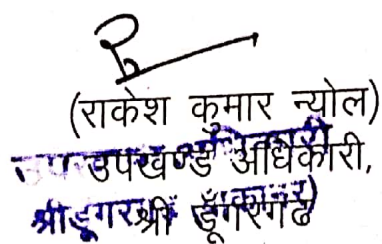 (राकेश कुमार न्योल)
उपखण्ड अधिकारी,
श्री डूँगरगढ